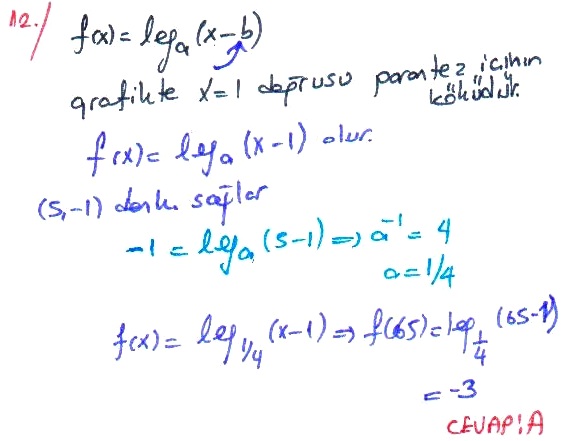 12./ f(x) = log_a (x-b)
grafikte x=1 doğrusu parantez içinin
köküdür.
f(x) = log_a (x-1) olur.
(5,-1) denk. sağlar
-1 = log_a (5-1) => a^-1 = 4
a = 1/4
f(x) = log_1/4 (x-1) => f(65) = log_1/4 (65-1)
= -3
CEVAP: A